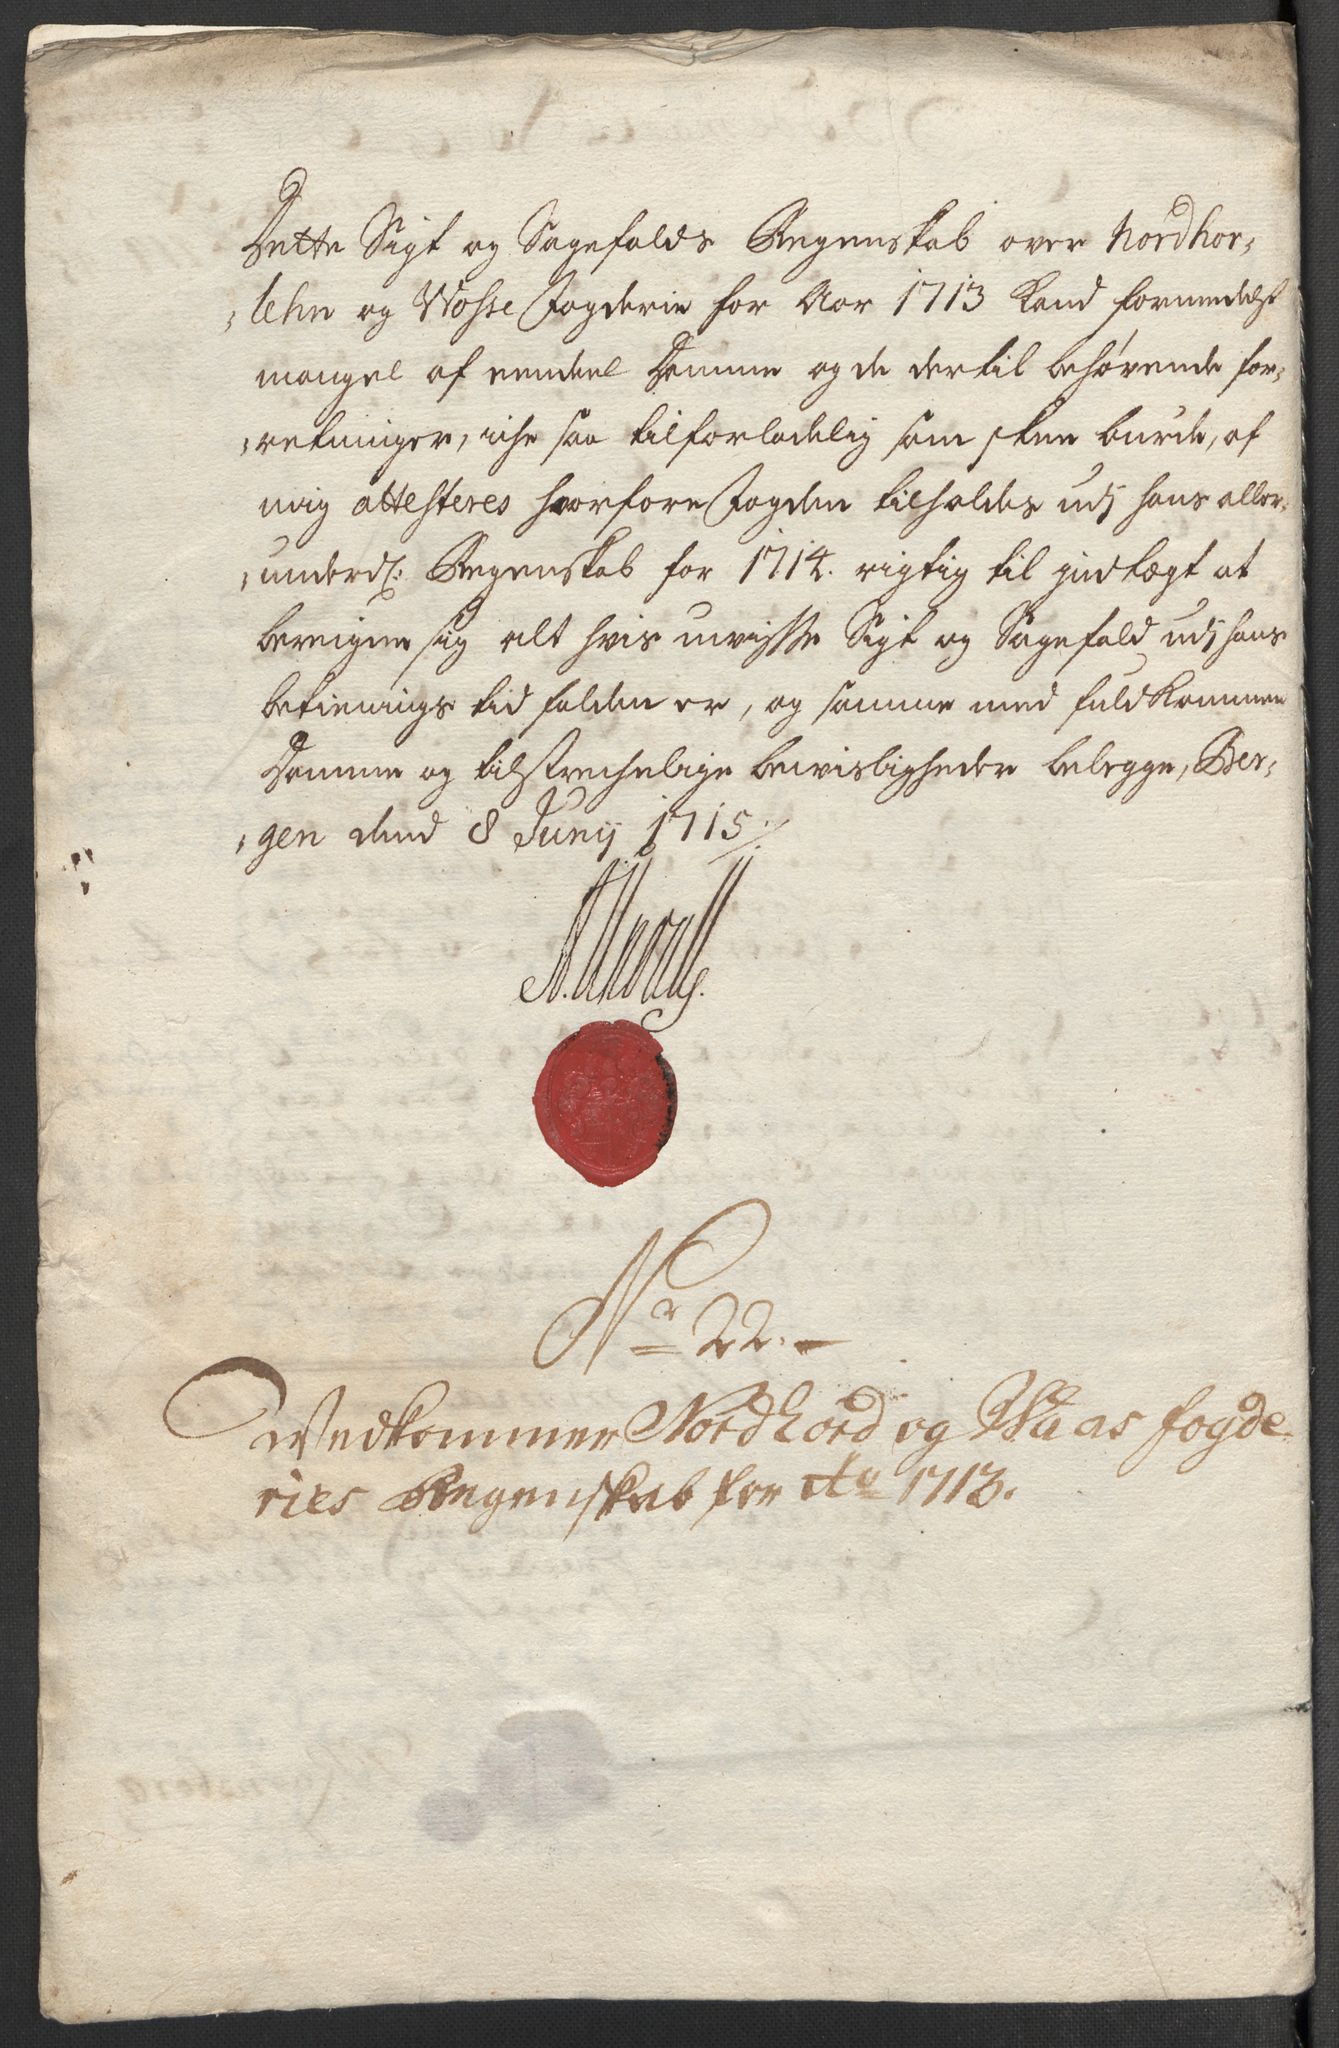 Dette Sigt og Sagefalds Regenskab over Nordhor-
-lehn og Wosse Fogderie for Aar 1713 kand formedelst
mangel af eendeel Domme og de dertil behørende for-
-retninger, iche saa tilforladelig som skee burde, af
mig attesteres hvorfore Fogden tilholdes udj hans aller-
-underd: Regenskab for 1714. rigtig til indtægt at
bereigne sig alt hvis uvisse Sigt og Sagefald udj hans
betienings tid falden er, og samme med fuldkommen
Domme og tilstrechelige beviisligheder belegge, Ber-
-gen dend 8 Junij 1715 /:
N.r 22.
Vedkommer Nordhord og Waas fogde-
ries Regenskab for Ao 1713.